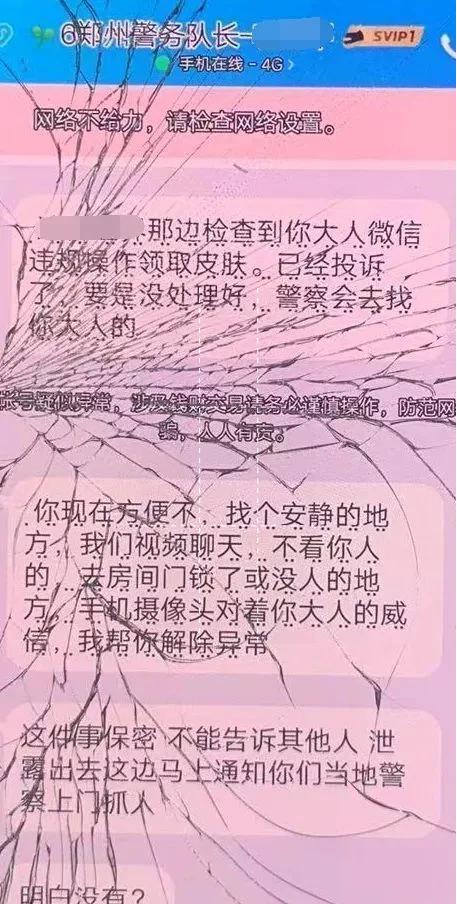 6郑州警务队长-
SVIP1
手机在线 - 4G
网络不给力，请检查网络设置。
那边检查到你大人微信
违规操作领取皮肤。已经投诉
了，要是没处理好，警察会去找
你大人的
帐号疑似异常，涉及钱财交易请务必谨慎操作，防范网
骗，人人有责。
你现在方便不，找个安静的地
方，我们视频聊天，不看你人
的，去房间门锁了或没人的地
方，手机摄像头对着你大人的威
信，我帮你解除异常
这件事保密 不能告诉其他人 泄
露出去这边马上通知你们当地警
察上门抓人
明白没有？